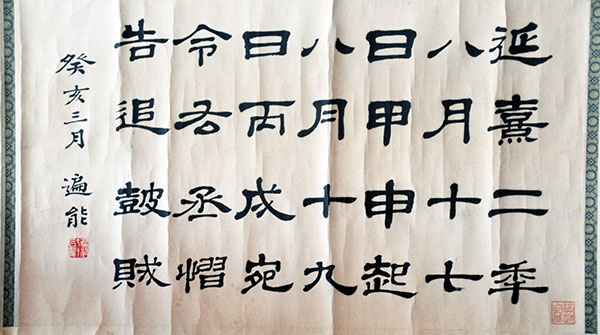 延熹二年
八月十七
日甲申起
八月十九
日丙戌宛
令右丞慴
告追鼓賊
癸亥三月 遍能